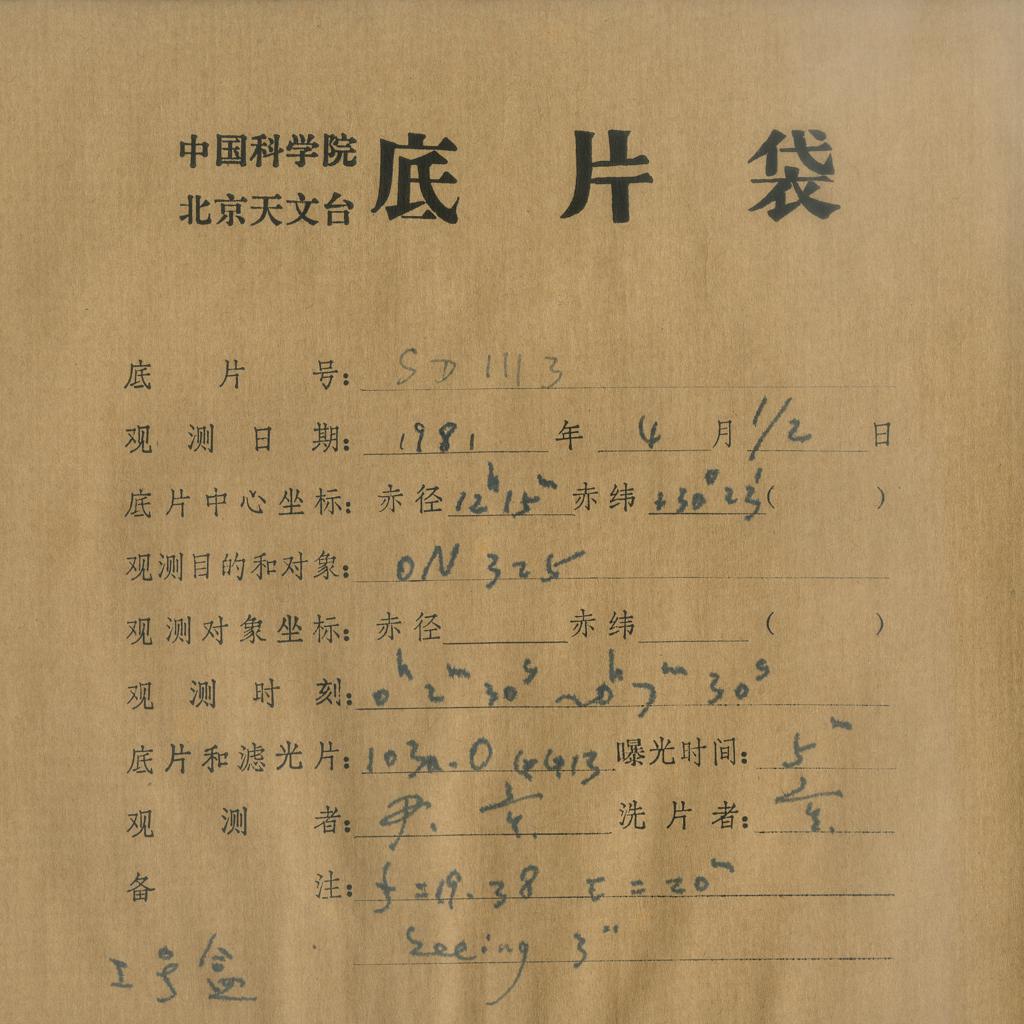 中国科学院
北京天文台
底片袋
底片号: SD 1113
观测日期: 1981 年 4 月 1/2 日
底片中心坐标: 赤径 12h15m 赤纬 +30°23′( )
观测目的和对象: ON 325
观测对象坐标: 赤径 赤纬 ( )
观测时刻: 0h 2m 30s ~0h 7m 30s
底片和滤光片: 103a-O GG13 曝光时间: 5m
观测者: 尹. 洗片者:
备注: f=19.38 t=20m
Seeing 3″
I号盒